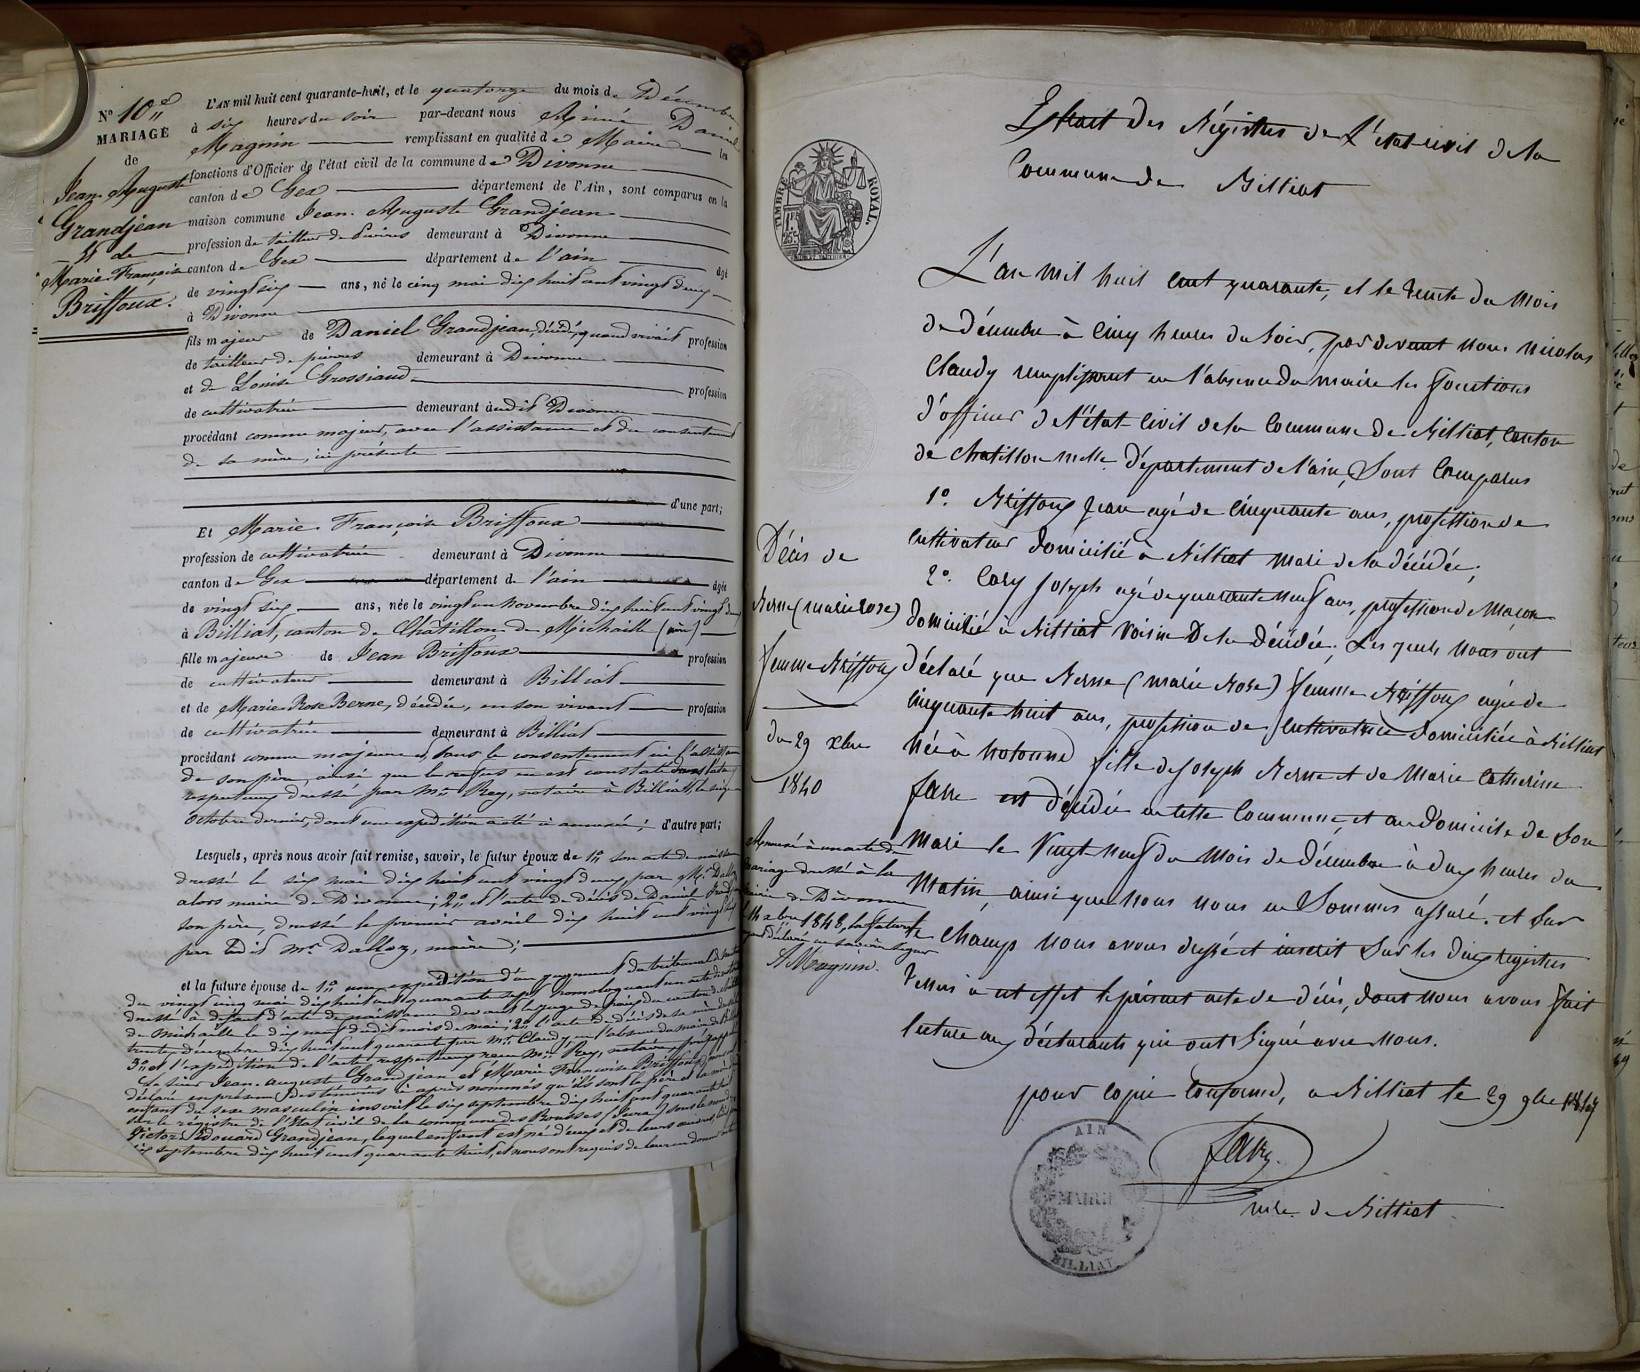 N° 10
MARIAGE
de
Jean-Auguste
Grandjean
Et de
Marie-Françoise
Briffoux.
L'AN mil huit cent quarante-huit, et le quatorze du mois de Décembre
à six heures du soir par-devant nous Aimé Daniel
Magnin remplissant en qualité de Maire les
fonctions d'Officier de l'état civil de la commune de Divonne
canton de Gex département de l'Ain, sont comparus en la
maison commune Jean-Auguste Grandjean
profession de tailleur de pierres demeurant à Divonne
canton de Gex département de l'ain âgé
de vingt six ans, né le cinq mai dix huit cent vingt deux
à Divonne
fils majeur de Daniel Grandjean, décédé, quand vivait profession
de tailleur de pierres demeurant à Divonne
et de Louise Grossiand profession
de cultivatrice demeurant audit Divonne
procédant comme majeur, avec l'assistance et du consentement
de sa mère, ici présente
d'une part;
Et Marie-Françoise Briffoux
profession de cultivatrice demeurant à Divonne
canton de Gex département de l'ain âgée
de vingt six ans, née le vingt un novembre dix huit cent vingt deux
à Billiat, canton de Châtillon-de-Michaille (ain)
fille majeure de Jean Briffoux profession
de cultivateur demeurant à Billiat
et de Marie-Rose Berne, décédée, en son vivant profession
de cultivatrice demeurant à Billiat
procédant comme majeure et sans le consentement ni l'assistance
de son père, ainsi que le refus en est constaté dans l'acte
respectueux dressé par Mr. Rey, notaire à Billiat, le six
octobre dernier, dont une expédition a été annexée; d'autre part;
Lesquels, après nous avoir fait remise, savoir, le futur époux de 1° son acte de naissance
dressé le six mai dix huit cent vingt deux par Mr. Dalloz
alors maire de Divonne; 2° et l'acte de décès de Daniel Grandjean
son père, dressé le premier avril dix huit cent vingt
par ledit Mr. Dalloz, maire;
et la future épouse de 1° une expédition d'un jugement du tribunal de
du vingt cinq mai dix huit cent quarante sept homologuant un acte de
dressé à défaut d'acte de naissance devant le juge de paix du canton de
de Michaille le dix neuf dudit mois de mai; 2° l'acte de décès de sa mère
trente décembre dix huit cent quarante par Mr. Claudy, en l'absence du maire de Billiat
3° et l'expédition de l'acte respectueux reçu Mr. Rey, notaire
Le sieur Jean-Auguste Grandjean et Marie Françoise Briffoux
déclaré en présence des témoins ci après nommés qu'ils sont le père et la mère
enfant du sexe masculin inscrit le six septembre dix huit cent quarante huit
sur le registre de l'état civil de la commune des Rousses (Jura) sous le nom
Victor Edouard Grandjean, lequel enfant est né d'eux et de leurs œuvres
six septembre dix huit cent quarante huit, et nous ont requis de leur en donner acte
TIMBRE ROYAL
Extrait des Régistres de L'état civil de la
Commune de Billiat
L'an mil huit cent quarante, et le trente du mois
de décembre à cinq heures du soir, par devant nous nicolas
Claudy remplissant en l'absence du maire les fonctions
d'officier de l'état civil de la commune de Billiat, canton
de chatillon mlle. département de l'ain, Sont Comparus
1°. Briffoux Jean agé de Cinquante ans, profession de
cultivateur domicilié à Billiat mari de la décédée;
2°. Cary Joseph agé de quarante neuf ans, profession de Maçon
domicilié à Billiat voisin De la Décédée; Les quels nous ont
déclaré que Berne (marie Rose) femme Briffoux agée de
cinquante huit ans, profession de Cultivatrice domiciliée à Billiat
née à hotonne fille de Joseph Berne et de Marie Catherine
favre est décédée en cette Commune, et au Domicile de Son
mari le Vingt neuf du Mois de Décembre à deux heures du
Matin, ainsi que nous nous en Sommes assuré. et Sur
le champ nous avons dressé et inscrit Sur les deux registres
tenus à cet effet le présent acte de décès, dont nous avons fait
lecture aux déclarants qui ont Signé avec nous.
pour copie Conforme, a Billiat le 29 9bre 1847
favre.
mre. de Billiat
Décès de
Berne (marie rose)
femme Briffoux
du 29 xbre
1840
Annexé à un acte de
mariage dressé à la
mairie de Divonne
le 14 xbre 1848, la future
ayant déclaré ne savoir signer
A. Magnin.
AIN
MAIRIE
BILLIAT